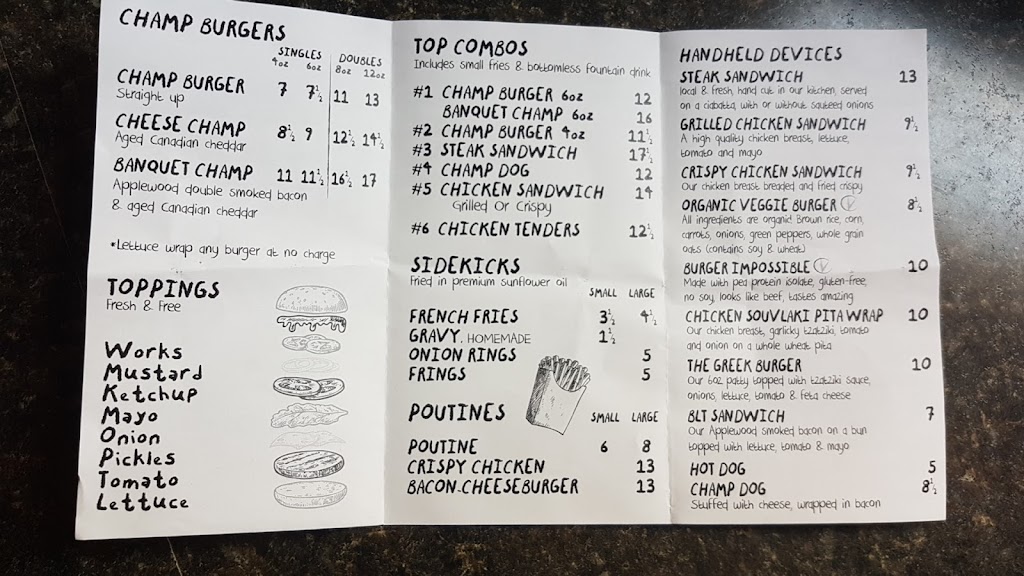 CHAMP BURGERS
SINGLES DOUBLES
4oz 6oz 8oz 12oz
CHAMP BURGER 7 7½ 11 13
Straight up
CHEESE CHAMP 8½ 9 12½ 14½
Aged Canadian cheddar
BANQUET CHAMP 11 11½ 16½ 17
Applewood double smoked bacon
& aged Canadian cheddar
*Lettuce wrap any burger at no charge
TOPPINGS
Fresh & Free
Works
Mustard
Ketchup
Mayo
Onion
Pickles
Tomato
Lettuce
TOP COMBOS
Includes small fries & bottomless fountain drink
#1 CHAMP BURGER 6oz 12
BANQUET CHAMP 6oz 16
#2 CHAMP BURGER 4oz 11½
#3 STEAK SANDWICH 17½
#4 CHAMP DOG 12
#5 CHICKEN SANDWICH 14
Grilled Or Crispy
#6 CHICKEN TENDERS 12½
SIDEKICKS
Fried in premium sunflower oil
SMALL LARGE
FRENCH FRIES 3½ 4½
GRAVY. HOMEMADE 1½
ONION RINGS 5
FRINGS 5
POUTINES SMALL LARGE
POUTINE 6 8
CRISPY CHICKEN 13
BACON-CHEESEBURGER 13
HANDHELD DEVICES
STEAK SANDWICH 13
local & fresh, hand cut in our kitchen, served
on a ciabatta, with or without sauteed onions
GRILLED CHICKEN SANDWICH 9½
A high quality chicken breast, lettuce,
tomato and mayo
CRISPY CHICKEN SANDWICH 9½
Our chicken breast breaded and fried crispy
ORGANIC VEGGIE BURGER V 8½
All ingredients are organic! Brown rice, corn,
carrots, onions, green peppers, whole grain
oats (contains soy & wheat)
BURGER IMPOSSIBLE V 10
Made with pea protein isolate, gluten-free,
no soy, looks like beef, tastes amazing
CHICKEN SOUVLAKI PITA WRAP 10
Our chicken breast, garlicky tzatziki, tomato
and onion on a whole wheat pita
THE GREEK BURGER 10
Our 6oz patty topped with tzatziki sauce,
onions, lettuce, tomato & feta cheese
BLT SANDWICH 7
Our Applewood smoked bacon on a bun
topped with lettuce, tomato & mayo
HOT DOG 5
CHAMP DOG 8½
Stuffed with cheese, wrapped in bacon